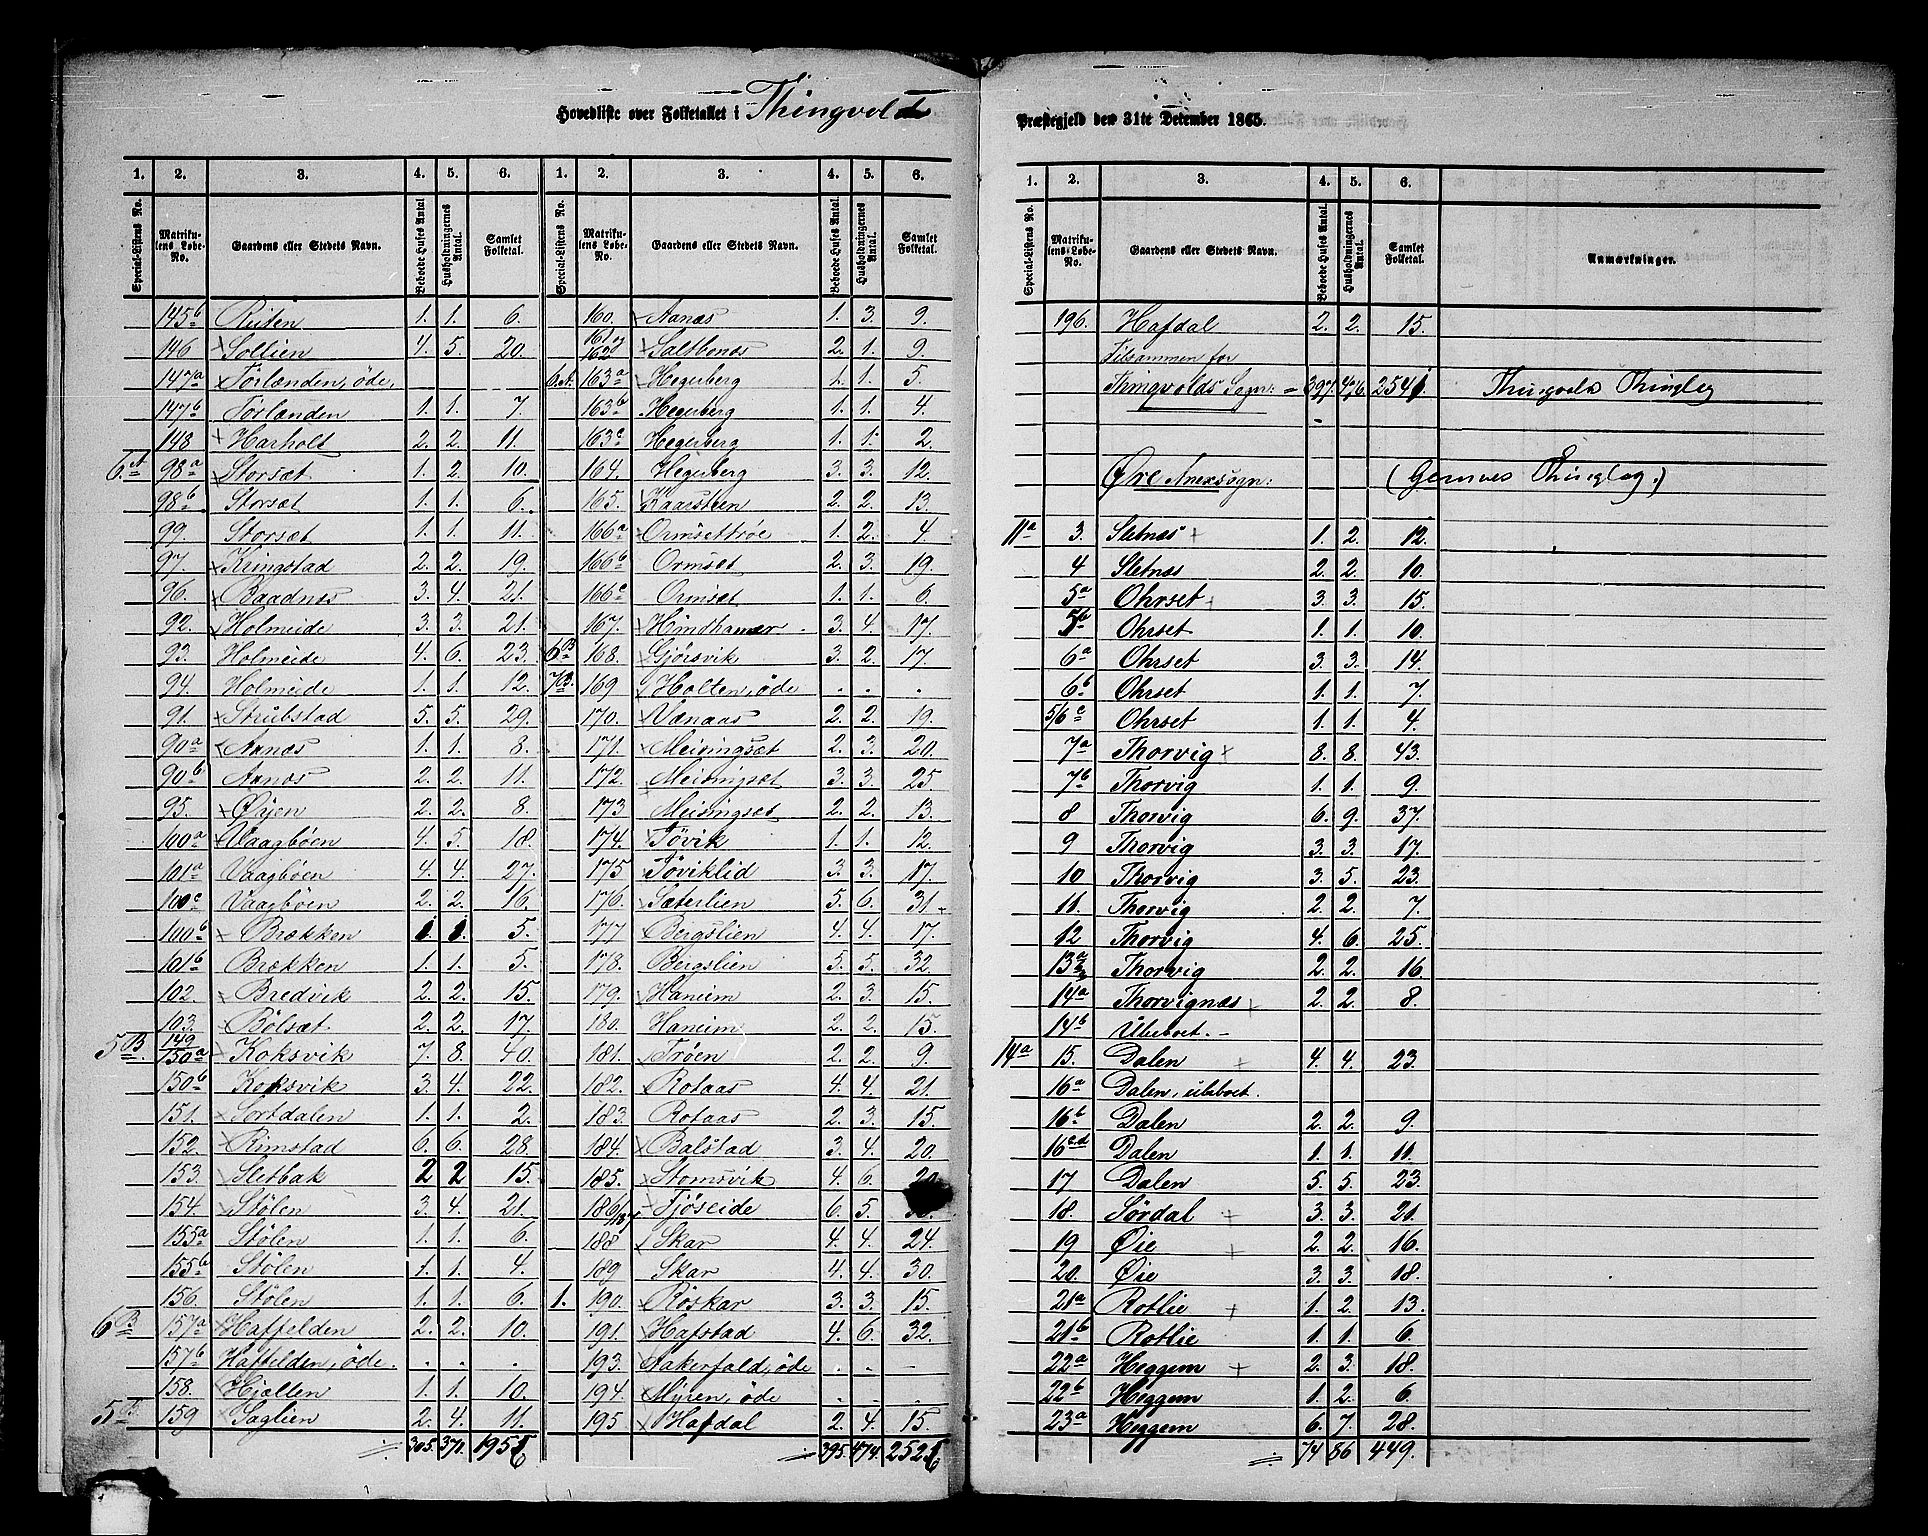 Hovedliste over Folketallet i Thingvold
Præstegjeld den 31te December 1865.
1. 2. 3. 4. 5. 6. 1. 2. 3. 4. 5. 6.
Special-Listens No. Matrikulens Løbe-No. Gaardens eller Stedets Navn. Beboede Huses Antal Husholdningernes Antal. Samlet Folketal. Special-Listens No. Matrikulens Løbe-No. Gaardens eller Stedets Navn. Beboede Huses Antal Husholdningernes Antal. Samlet Folketal.
145b Ruten 1. 1. 6. 160. Aanæs 1. 3. 9.
146 Sollien 4. 5. 20. 161 og 162 Saltbenæs 2. 1. 9.
147a Torlænden, öde, 6.A. 163a Hegerberg 1. 1. 5.
147b Torlænden 1. 1. 7. 163b Hegerberg 1. 1. 4.
148 Harholt 2. 2. 11. 163c Hegerberg 1. 1. 2.
6.A 98a Storsæt 1. 2. 10. 164. Hegerberg 3. 3. 12.
98b Storsæt 1. 1. 6. 165. Kaarsteen 2. 2. 13.
99. Storsæt 1. 1. 11. 166a Ormsettrøe 1. 2. 4.
97. Kringstad 2. 2. 19. 166b Ormset 2. 3. 19.
96. Baadnæs 3. 4. 21. 166c Ormset 1. 1. 6.
92. Holmeide 3. 3. 21. 167. Hindhamer 3. 4. 17.
93. Holmeide 4. 6. 23. 6B 168. Gjörsvik 3. 2. 17.
94. Holmeide 1. 1. 12. 7B. 169 Holten, öde . . .
91. Strubstad 5. 5. 29. 170. Vænaas 2. 2. 19.
90a Aanæs 1. 1. 8. 171. Meisingsæt 2. 3. 20.
90b Aanæs 2. 2. 11. 172. Meisingsæt 3. 3. 25.
95. Øxjen 2. 2. 8. 173 Meisingset 2. 2. 13.
100a Vaagbøen 4. 5. 18. 174. Tövik 1. 1. 12.
101a Vaagbøen 4. 4. 27. 175 Töviklid 3. 3. 17.
100c Vaagböen 2. 2. 16. 176. Sæterlien 5. 6. 31.
100b Brækken 1. 1. 5. 177 Bergslien 4. 4. 17.
101b Brækken 1. 1. 5. 178. Bergslien 5. 5. 32.
102. Bredvik 2. 2. 15. 179. Haneim 2. 3. 15.
103. Bölsæt 2. 2. 17. 180. Haneim 2. 2. 15.
5B. 149 150a Koksvik 7. 8. 40. 181. Tröen 2. 2. 9.
150b Koksvik 3. 4. 22. 182. Rotaas 4. 4. 21.
151. Sortdalen 1. 1. 2. 183. Rotaas 2. 3. 15.
152. Rimstad 6. 6. 28. 184. Balstad 3. 4. 20.
153. Sletbak 2 2 15. 185. Stomsvik 4. 6.
154. Stölen 3. 4. 21. 186/187 Tjöseide 6. 5.
155a Stölen 1. 1. 6. 188 Skar 4. 4. 24.
155b Stölen 1. 1. 4. 189 Skar 4. 4. 30.
156. Stölen 1. 1. 6. 1. 190. Röskar 3. 3. 15.
6B 157a Haffelden 2. 2. 10. 191. Hafstad 4. 6. 32.
157b Haffelden, öde. . . . 193. Aakerfald, öde . . .
158. Hjælten 1. 1. 10. 194. Myren, öde . . .
5B. 159 Saglien 2. 4. 11. 195 Hafdal 2. 4. 15.
305. 371. 1956 395. 474. 2526
1. 2. 3. 4. 5. 6.
Special-Listens No. Matrikulens Løbe-No. Gaardens eller Stedets Navn. Beboede Huses Antal. Husholdningernes Antal. Samlet Folketal. Anmærkninger.
196. Hafdal 2. 2. 15.
Tilsammen for
Thingvolds Sogn: = 397. 476. 2541. Thingvolds Thinglag
Øre Anexsogn: (Gemnes Thinglag.)
11a 3. Sletnæs 1. 2. 12.
4 Sletnæs 2. 2. 10.
5a Ohrset 3. 3. 15.
5b Ohrset 1. 1. 10.
6a Ohrset 3. 3. 14.
6b Ohrset 1. 1. 7.
5/6c Ohrset 1. 1. 4.
7a Thorvig 8. 8. 43.
7b Thorvig 1. 1. 9.
8 Thorvig 6. 9. 37.
9 Thorvig 3. 3. 17.
10 Thorvig 3. 5. 23.
11. Thorvig 2. 2. 7.
12 Thorvig 4. 6. 25.
13a Thorvig 2. 2. 16.
14a Thorvignæs 2. 2. 8.
14b Ubeboet. -
14a 15. Dalen 4. 4. 23.
16a Dalen, ubeboet.
16b Dalen 2. 2. 9.
16c.d Dalen 1. 1. 11.
17 Dalen 5. 5. 23.
18. Sördal 3. 3. 21.
19 Øie 2. 2. 16.
20. Øie 3. 3. 18.
21a Rotlie 1. 2. 13.
21b Rotlie 1. 1. 6.
22a Heggem 2. 3. 18.
22b Heggem 1. 2. 6.
23a Heggem 6. 7. 28.
74 86 449.